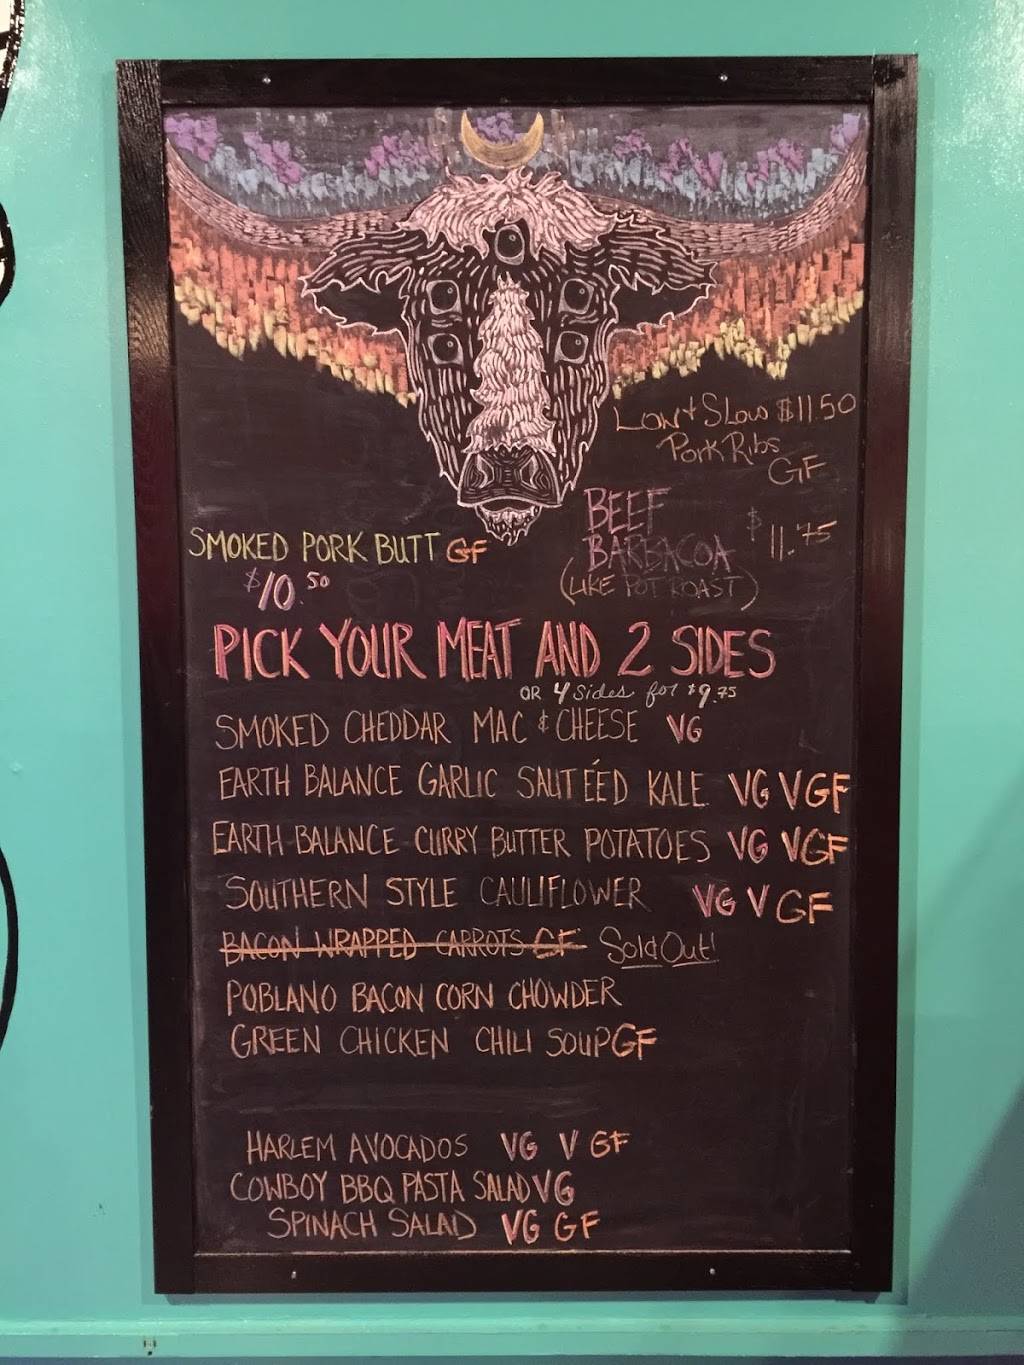 Low & Slow $11.50
Pork Ribs
GF
BEEF
BARBACOA $11.75
(LIKE POT ROAST)
SMOKED PORK BUTT GF
$10.50
PICK YOUR MEAT AND 2 SIDES
OR 4 Sides for $9.75
SMOKED CHEDDAR MAC & CHEESE VG
EARTH BALANCE GARLIC SAUTÉÉD KALE VG V GF
EARTH BALANCE CURRY BUTTER POTATOES VG V GF
SOUTHERN STYLE CAULIFLOWER VG V GF
BACON WRAPPED CARROTS GF Sold Out!
POBLANO BACON CORN CHOWDER
GREEN CHICKEN CHILI SOUP GF
HARLEM AVOCADOS VG V GF
COWBOY BBQ PASTA SALAD VG
SPINACH SALAD VG GF